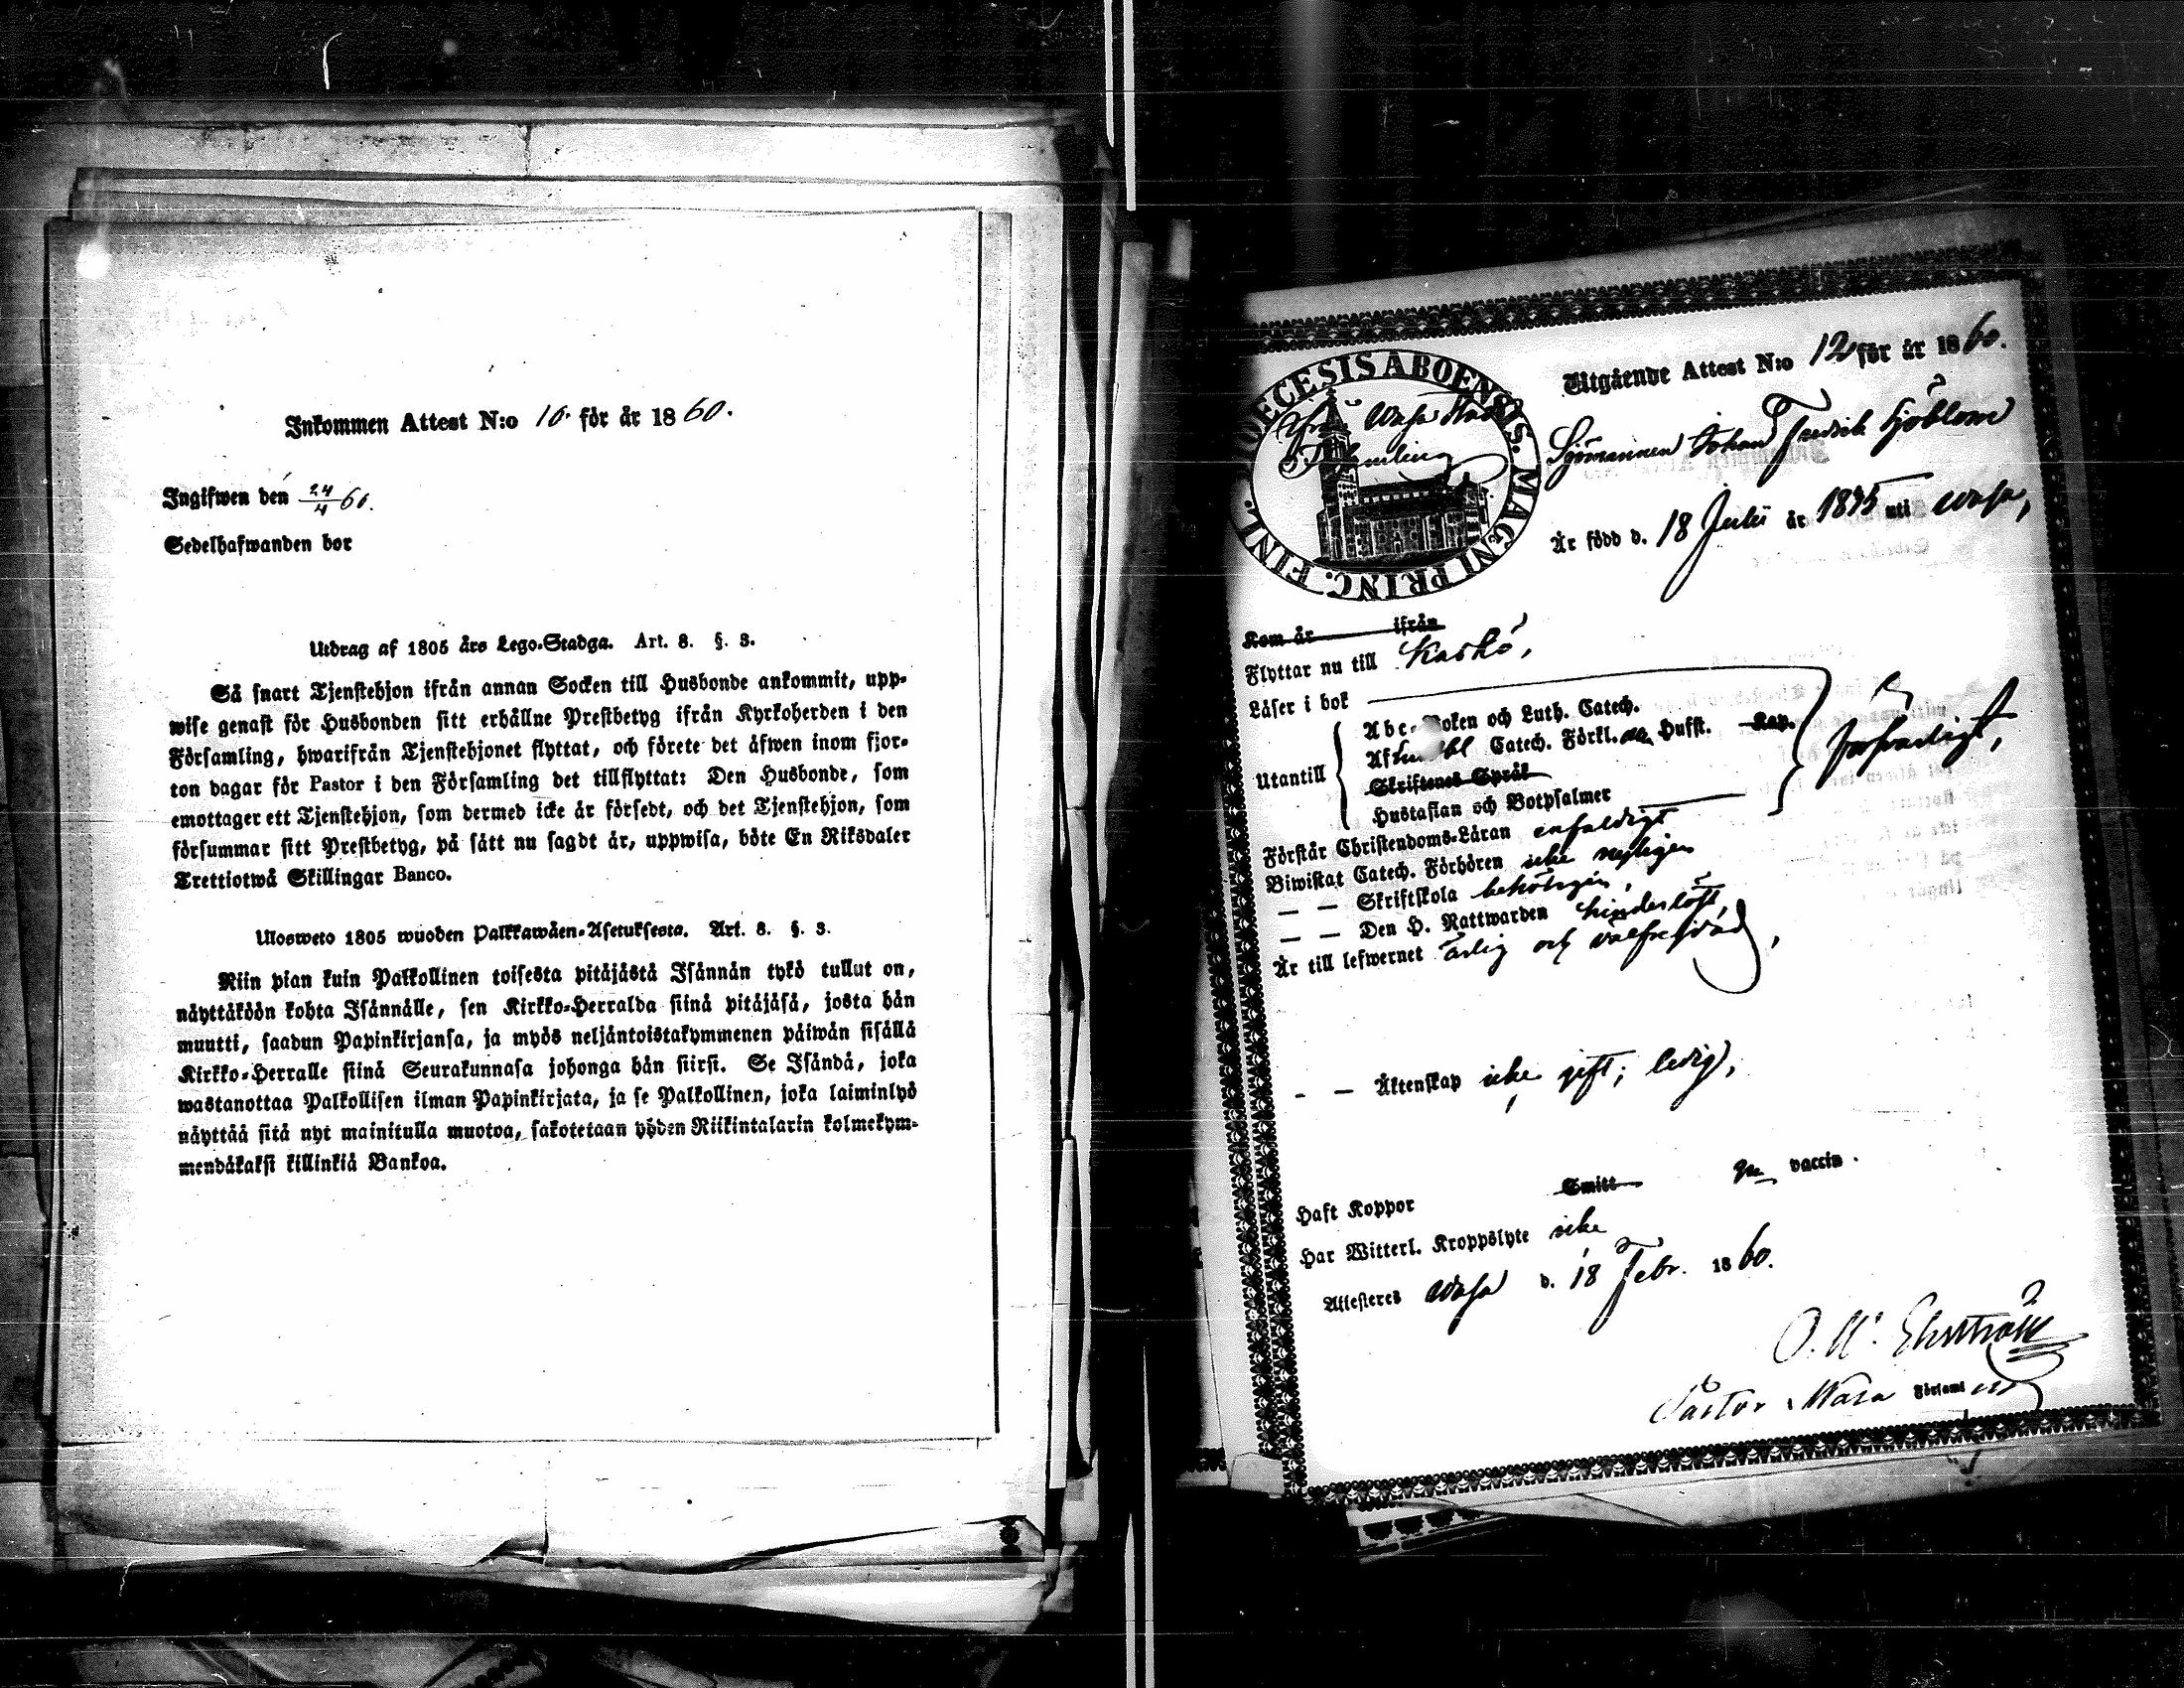 Inkommen Attest N:o 10. för år 1860.
Ingifwen den 24/4 60.
Sedelhafwanden bor
Utdrag af 1805 års Lego-Stadga. Art. 8. §. 3.
Så snart Tjenstehjon ifrån annan Socken till Husbonde ankommit, upp-
wise genast för Husbonden sitt erhållne Prestbetyg ifrån Kyrkoherden i den
Församling, hwarifrån Tjenstehjonet flyttat, och förete det äfwen inom fjor-
ton dagar för Pastor i den Församling det tillflyttat: Den Husbonde, som
emottager ett Tjenstehjon, som dermed icke är försedt, och det Tjenstehjon, som
försummar sitt Prestbetyg, på sätt nu sagdt är, uppwisa, böte En Riksdaler
Trettiotwå Skillingar Banco.
Ulosweto 1805 wuoden Palkkawäen-Asetuksesta. Art. 8. §. 3.
Niin pian kuin Palkollinen toisesta pitäjästä Isännän tykö tullut on,
näyttäköön kohta Isännälle, sen Kirkko-Herralda siinä pitäjäsä, josta hän
muutti, saadun Papinkirjansa, ja myös neljäntoistakymmenen päiwän sisällä
Kirkko-Herralle siinä Seurakunnasa johonga hän siirsi. Se Isändä, joka
wastanottaa Palkollisen ilman Papinkirjata, ja se Palkollinen, joka laiminlyö
näyttää sitä nyt mainitulla muotoa, sakotetaan yhden Riikintalarin kolmekym-
mendäkaksi killinkiä Bankoa.
DIOECESIS ABOENSIS. MAGNI PRINC. FINL.
Från Wasa Stads
Församling
Utgående Attest N:o 12 för år 1860.
Sjömannen Johan Fredrik Sjöblom
Är född d. 18 Julii år 1835 uti Wasa,
Kom år ifrån
Flyttar nu till Kaskö,
Läser i bok
Utantill
Abc-Boken och Luth. Catech.
Af Catech. Förkl. Hufst. Kap.
Skriftenes Språk
Hustaflan och Botpsalmer
försvarligt,
Förstår Christendoms-Läran enfaldigt
Biwistat Catech. Förhören icke nyligen
— — Skriftskola behörigen,
— — Den H. Nattwarden hinderslöst,
Är till lefwernet ärlig och välfrejdad,
- — Äktenskap icke gift; ledig,
Haft Koppor Smitt gm vaccin.
Har Witterl. Kroppslyte icke
Attesteres Wasa d. 18 Febr. 1860.
O. M. Ehrström
Pastor i Wasa Församl